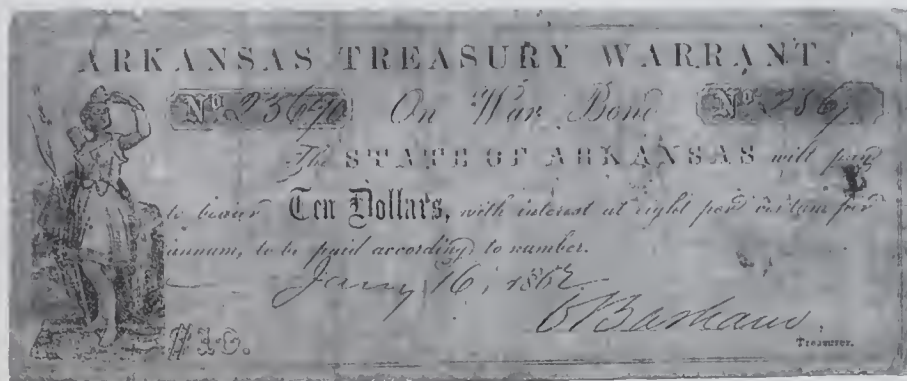 ARKANSAS TREASURY WARRANT.
No. 23690 On War Bond No. 286
The STATE OF ARKANSAS will pay
to bearer Ten Dollars, with interest at eight per centum per
annum, to be paid according to number.
Jany 16, 1862
Treasurer.
$10.